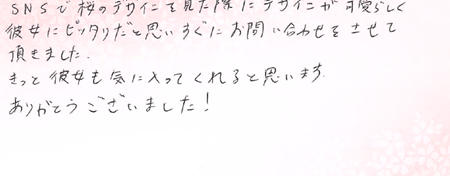 SNSで桜のデザインを見た際にデザインが可愛らしく
彼女にピッタリだと思いすぐにお問い合わせをさせて
頂きました.
きっと彼女も気に入ってくれると思います.
ありがとうございました!